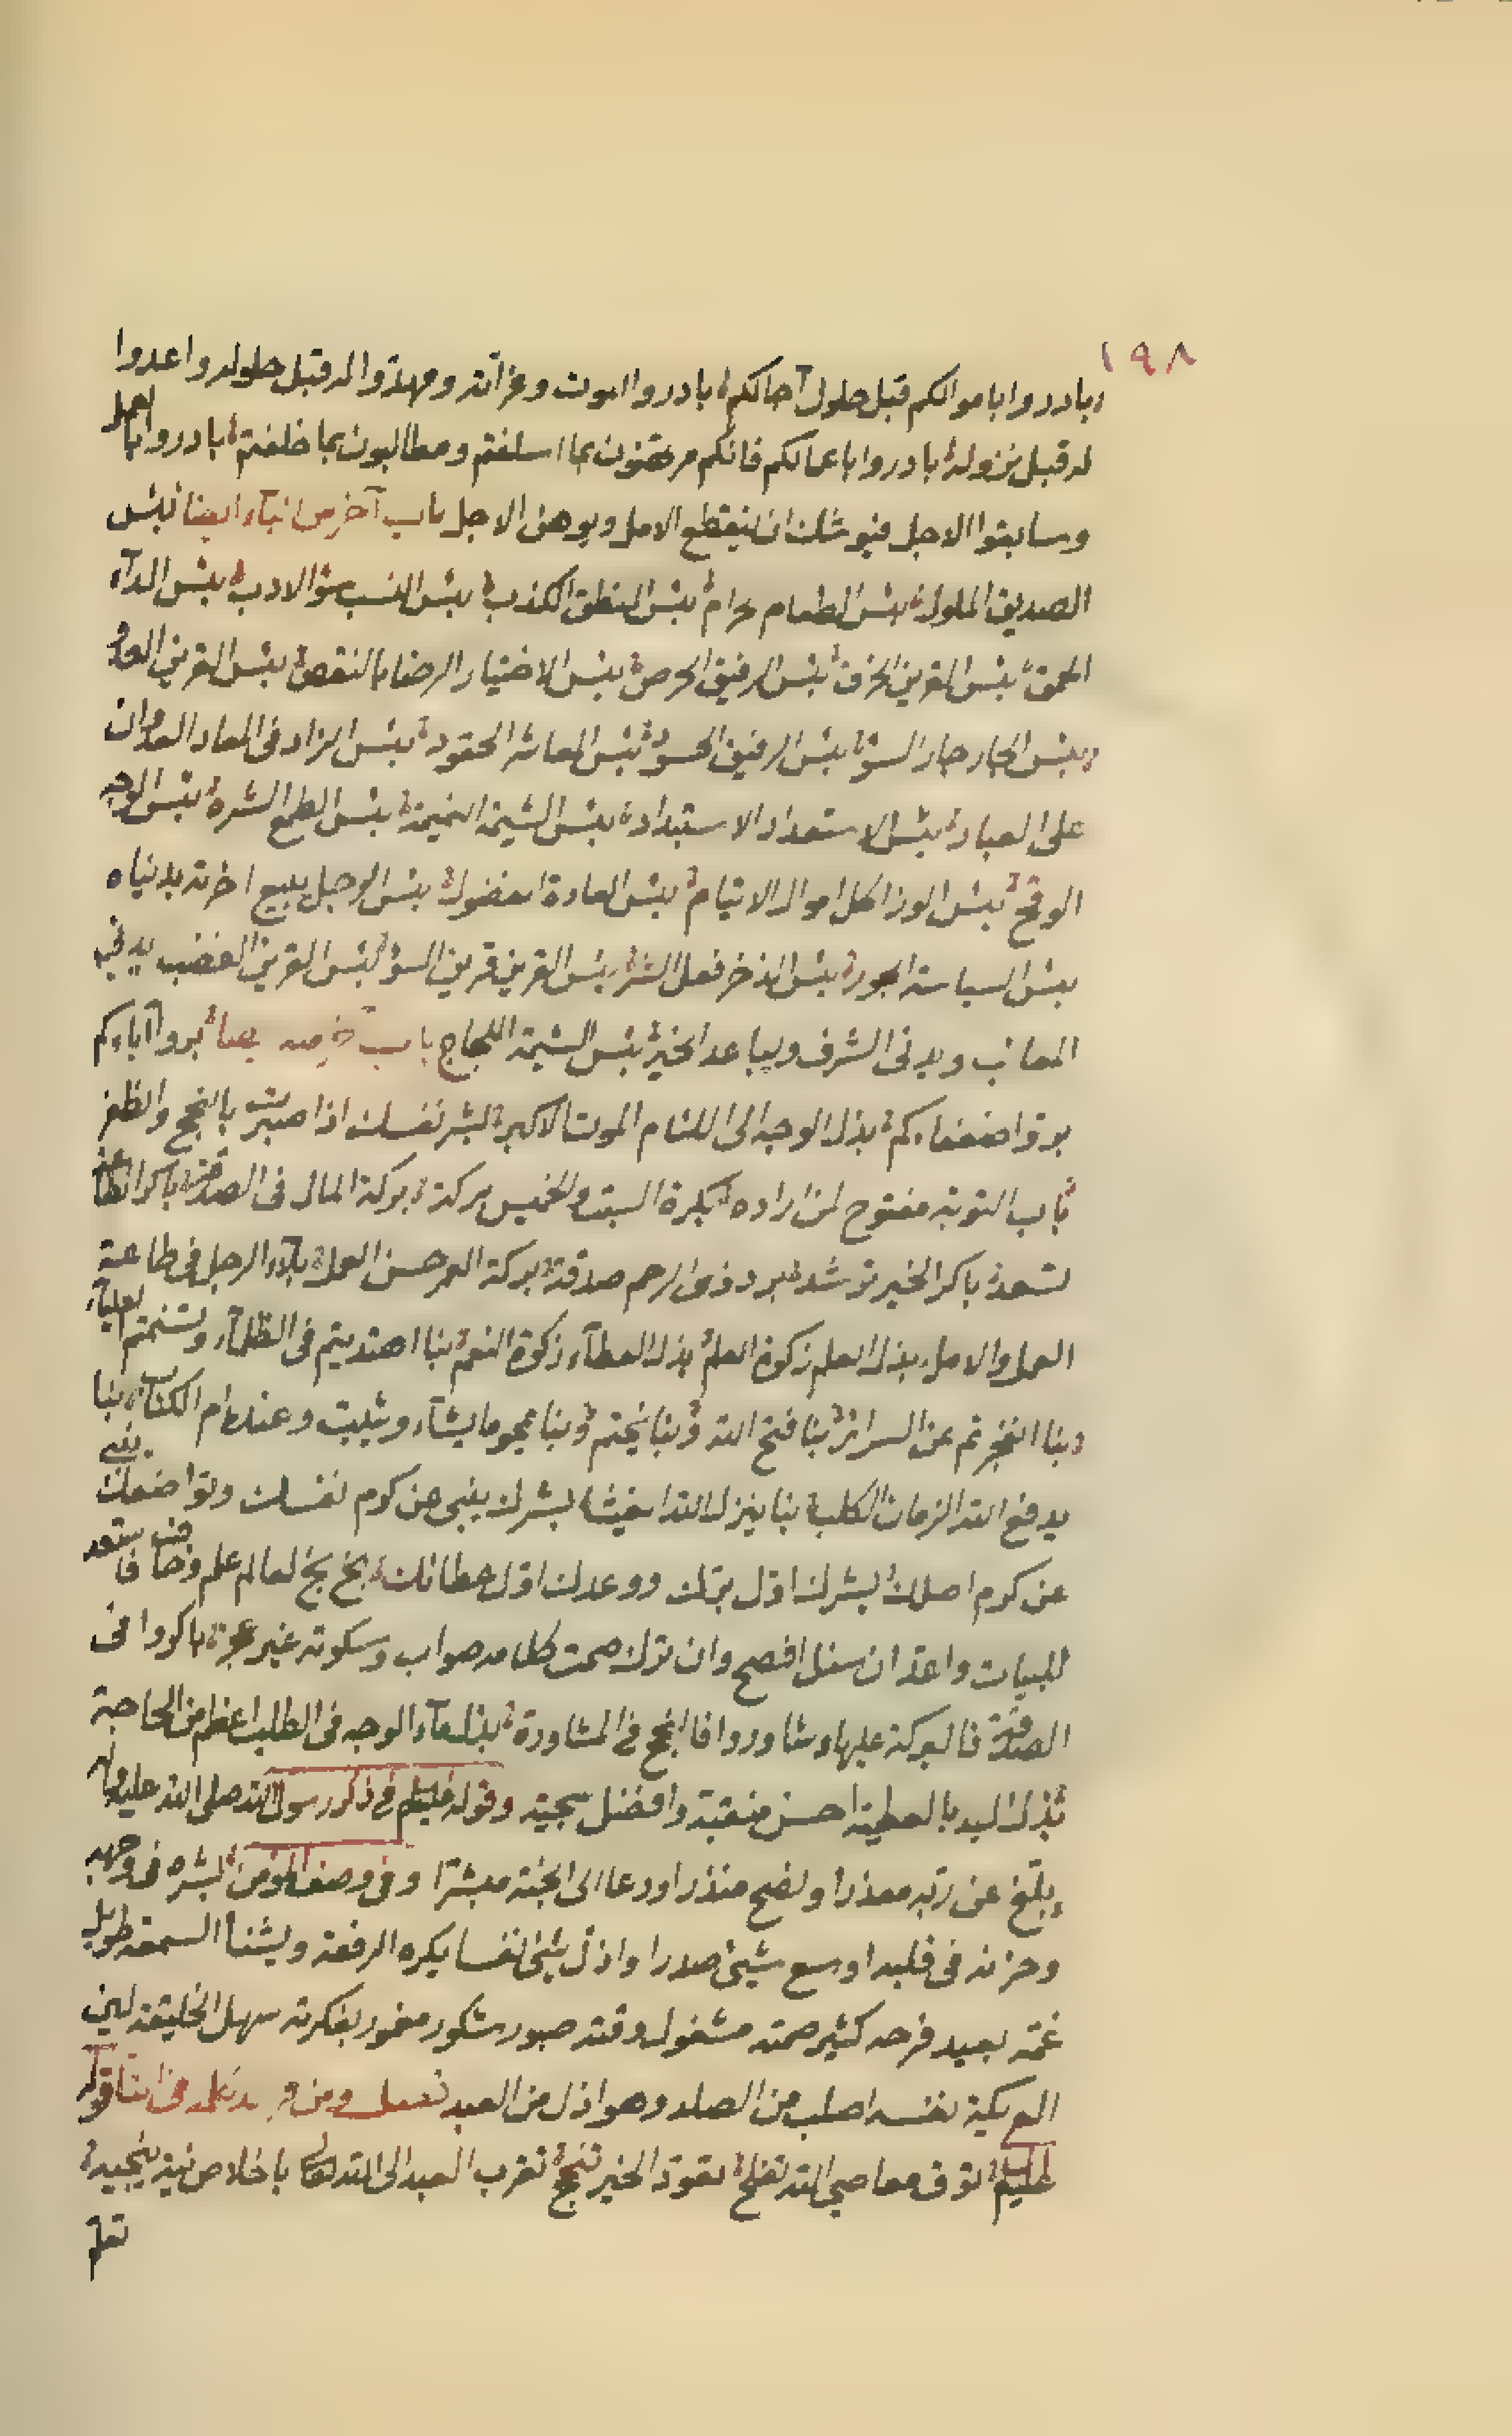 ١٩٨
بادروا باموالكم قبل حلول آجالكم بادروا الموت وغمراته ومهدوا له قبل حلوله واعدوا
له قبل نزوله بادروا باعمالكم فانكم مرتهنون بما اسلفتم ومطالبون بما خلفتم بادروا بالعمل
وسابقوا الاجل فيوشك ان ينقطع الامل ويرهق الاجل باب آخر من الباء ايضا بئس
الصديق الملول بئس الطعام الحرام بئس المنطق الكذب بئس النسب سوٴ الادب بئس الدآء
الحمق بئس القرين الخرق بئس الرفيق الحرص بئس الاختيار الرضا بالنقص بئس القرين العدو
بئس الجار جار السوٴ بئس الرفيق الحسود بئس العاشر الحقود بئس الزاد فى المعاد العدوان
على العباد بئس الاستعداد الاستبداد بئس الشيمة النميمة بئس الطمع الشره بئس الوجه
الوقح بئس الوزر اكل اموال الايتام بئس العادة الفضول بئس الرجل يبيع اخرته بدنياه
بئس السياسة الجور بئس الذخر فعل الشر بئس القرين قرين السوٴ بئس القرين الغضب يبدى
المعائب ويدنى الشر ويباعد الخير بئس الشيمة اللجاج باب آخر منه ايضا بروا آباءكم
بذل الوجه الى اللئام الموت الاكبر بشر نفسك اذا صبرت بالنجح والظفر
باب التوبة مفتوح لمن اراده بكرة السبت والخميس بركة بركة المال فى الصدقة باكر الطاعة
تسعد باكر الخير ترشد بر ذوى الرحم صدقة بركة العمر حسن العمل بلآء الرجل فى طاعة
العمل والامل بذل العلم زكوة العلم بذل العطآء زكوة النعم بنا اهتديتم فى الظلمآء وتسنمتم العليآء
وبنا انفجرتم عن السرار بنا فتح الله وبنا يختم وبنا يمحو ما يشآء ويثبت وعنده ام الكتاب بنا
يدفع الله الزمان الكلب بنا ينزل الله الغيث بشرك ينبى عن كرم نفسك وتواضعك ينبى
عن كرم اصلك بشرك اول برك ووعدك اول عطائك بخ بخ لعالم علم فكف وخاف فاستعد
للبيات واعد ان سئل افصح وان ترك صمت كلامه صواب وسكوته غير عى باكروا فى
الصدقة فالبركة عليها وشاوروا فالنجح فى المشاورة بذل مآء الوجه فى الطلب اعظم من الحاجة
بذل اليد بالعطية احسن منقبة وافضل سجية وقوله عليه السلام فى ذكر رسول الله صلى الله عليه وآله
بلغ عن ربه معذرا ونصح منذرا ودعا الى الجنة مبشرا وفى وصف المؤمن بشره فى وجهه
وحزنه فى قلبه اوسع شيئ صدرا واذل شيئ نفسا يكره الرفعة ويشنأ السمعة طويل
غمه بعيد فرحه كثير صمته مشغول وقته صبور شكور مغمور بفكرته سهل الخليقة لين
العريكة نفسه اصلب من الصلد وهو اذل من العبد
عليه السلام توق معاصى الله تفلح تعود الخير تنجح تقرب العبد الى الله تعالى باخلاص نيته ينجيه